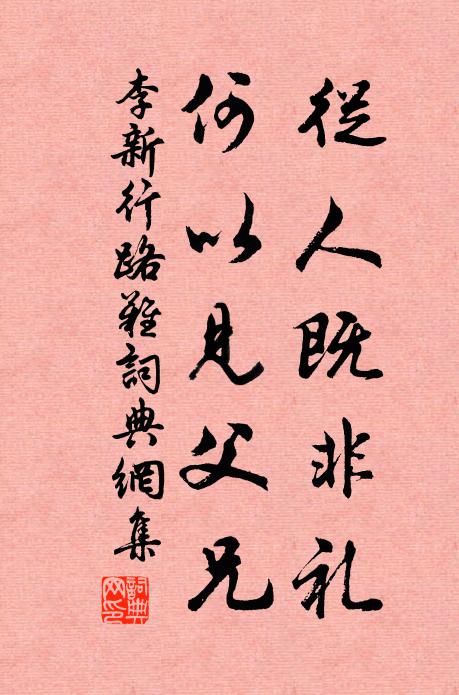 從人既非礼
何以見父兄
李新行路難詞典網集
詞典网印